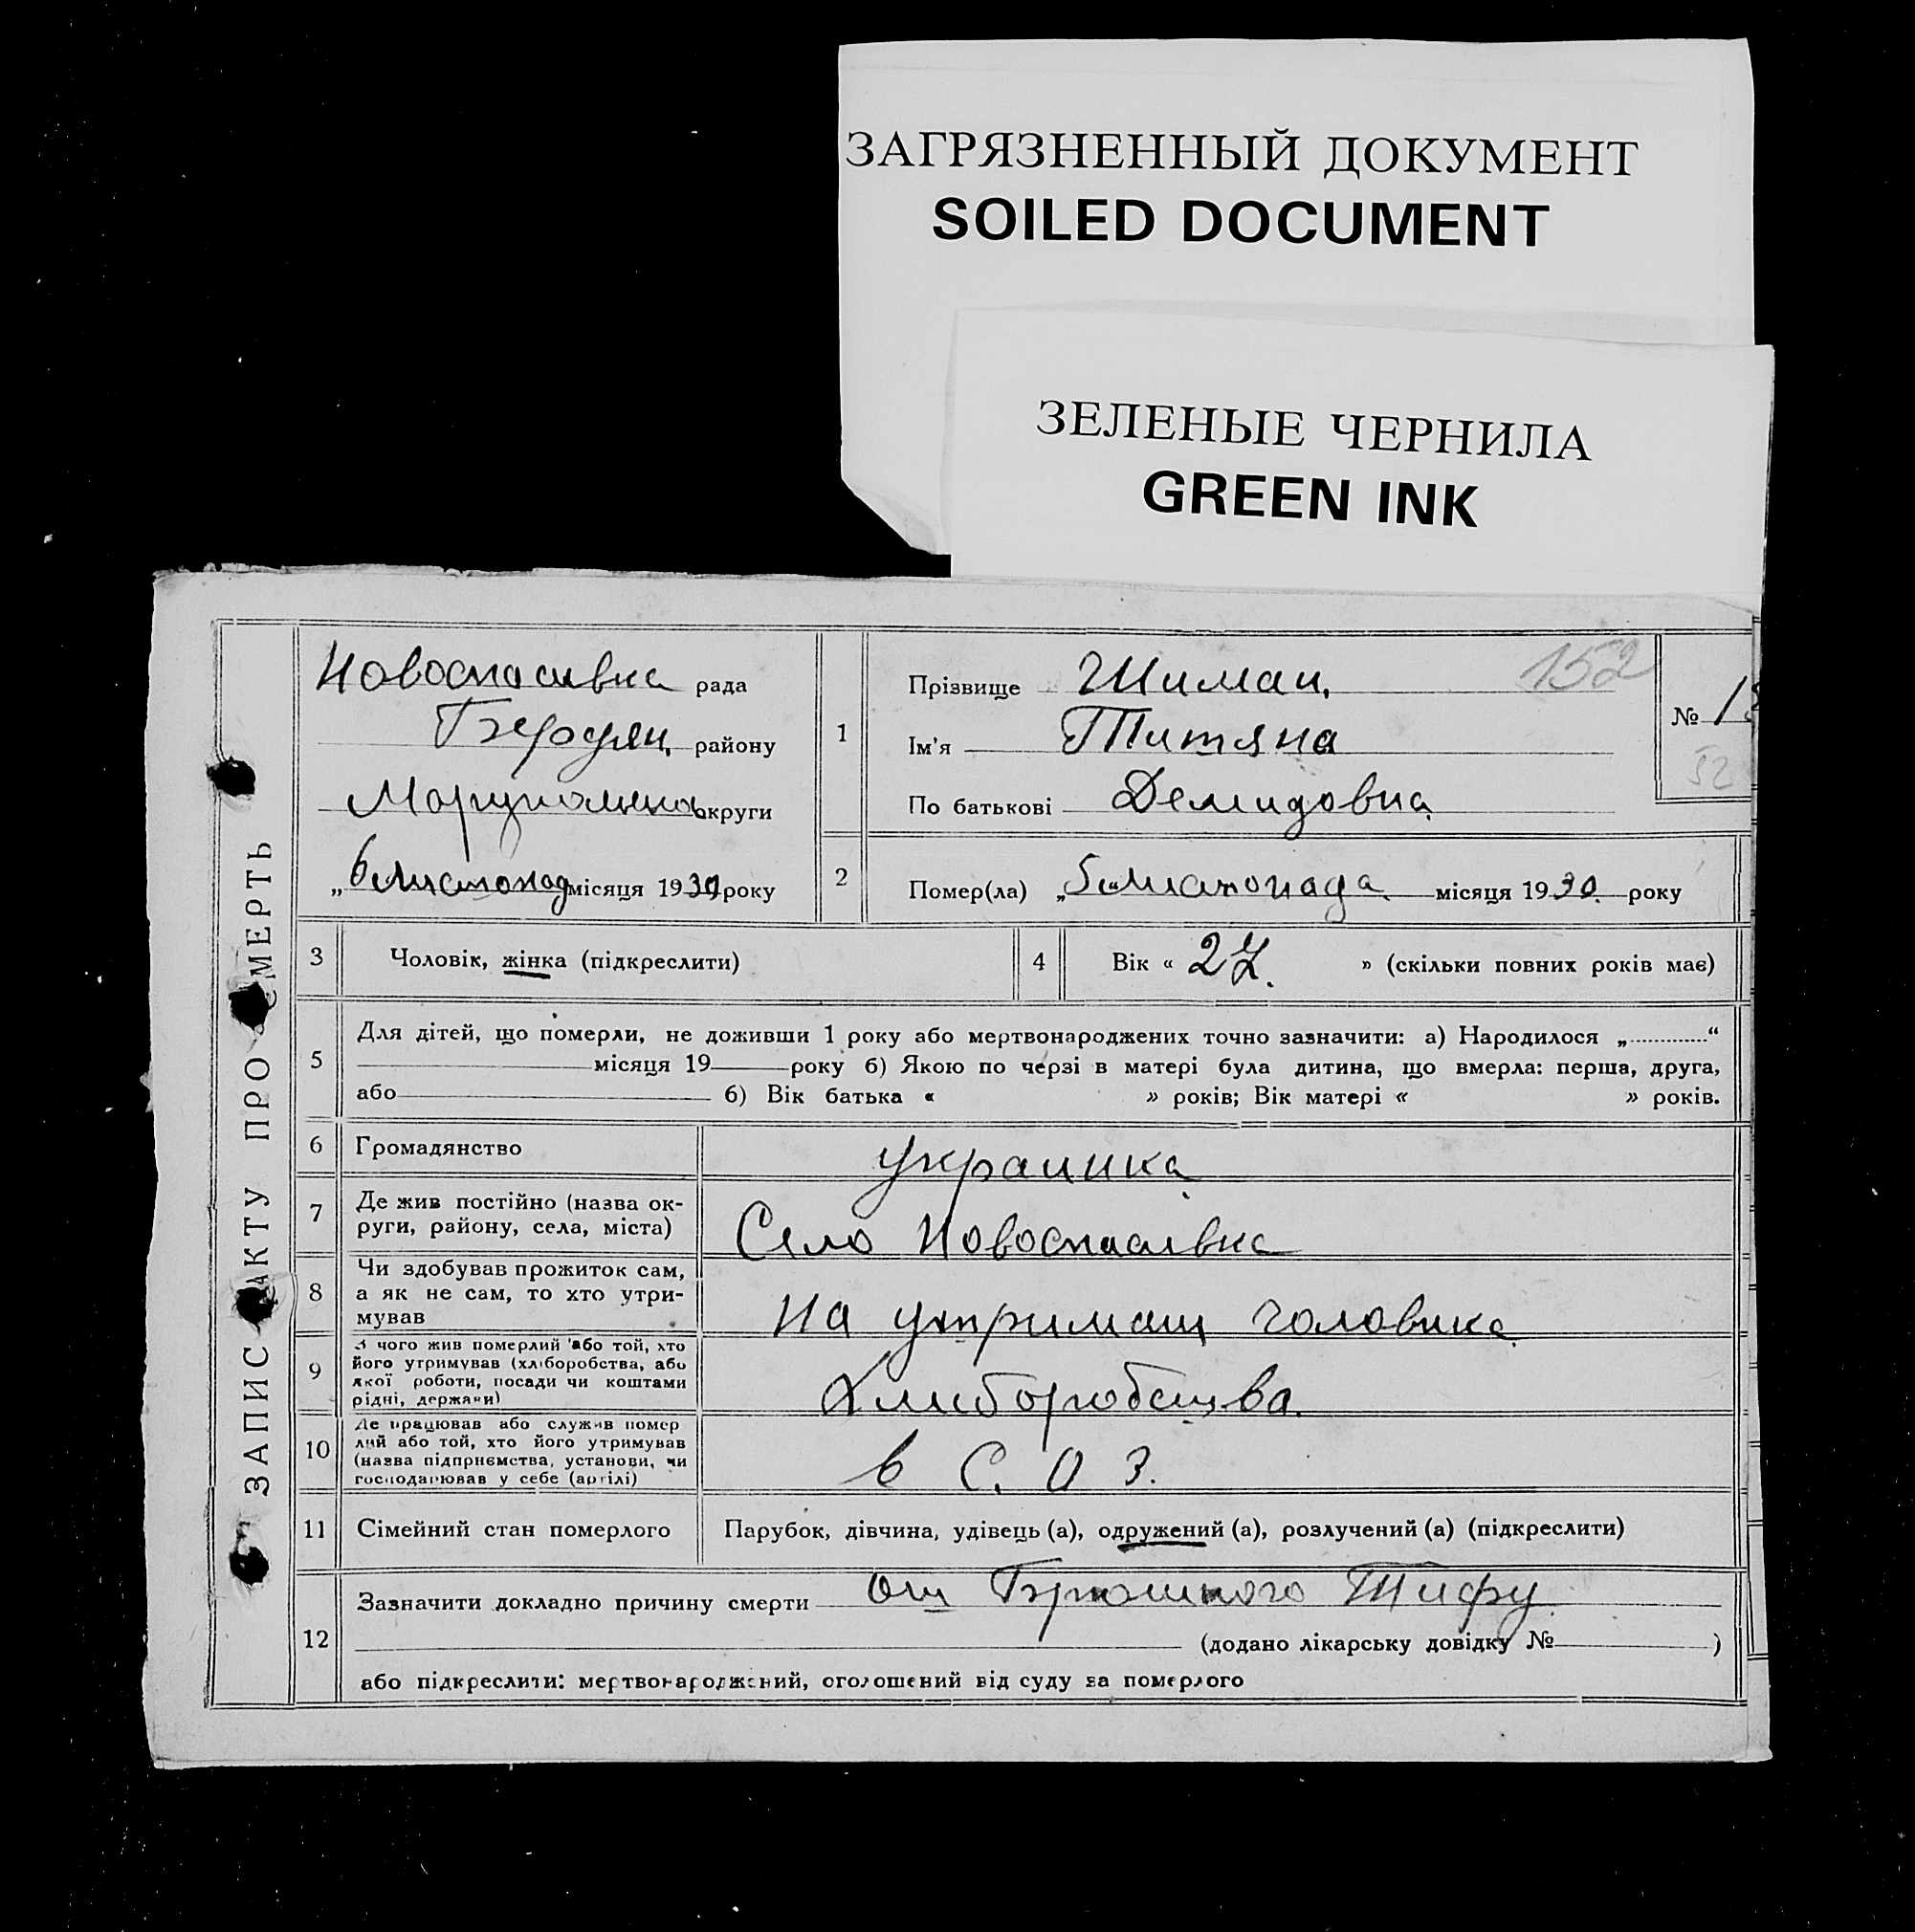 ЗАГРЯЗНЕННЫЙ ДОКУМЕНТ
SOILED DOCUMENT
ЗЕЛЕНЫЕ ЧЕРНИЛА
GREEN INK
ЗАПИС АКТУ ПРО СМЕРТЬ
Новоспасивка рада
Бердян. району
округи
„6 листопад місяця 1930 року
1
Прізвище Шиман,
152
Ім'я Титяна
По батькові Демидовна
№ 1
52
2
Помер(ла) „5 листопада місяця 1930. року
3 Чоловік, жінка (підкреслити)
4 Вік « 27. » (скільки повних років має)
5 Для дітей, що померли, не доживши 1 року або мертвонароджених точно зазначити: а) Народилося „ “
місяця 19 року б) Якою по черзі в матері була дитина, що вмерла: перша, друга,
або б) Вік батька « » років; Вік матері « » років.
6 Громадянство украинка
7 Де жив постійно (назва ок-
руги, району, села, міста) Село Новоспасивка
8 Чи здобував прожиток сам,
а як не сам, то хто утри-
мував на утримани головика
9 З чого жив померлий або той, хто
його утримував (хліборобства, або
якої роботи, посади чи коштами
рідні, держави) Хлиборобства.
10 Де працював або служив помер
лий або той, хто його утримував
(назва підприємства, установи, чи
господарював у себе (артілі) в С. О З.
11 Сімейний стан померлого Парубок, дівчина, удівець (а), одружений (а), розлучений (а) (підкреслити)
12 Зазначити докладно причину смерти от Брюшного Тифу
(додано лікарську довідку № )
або підкреслити: мертвонароджений, оголошений від суду за померлого